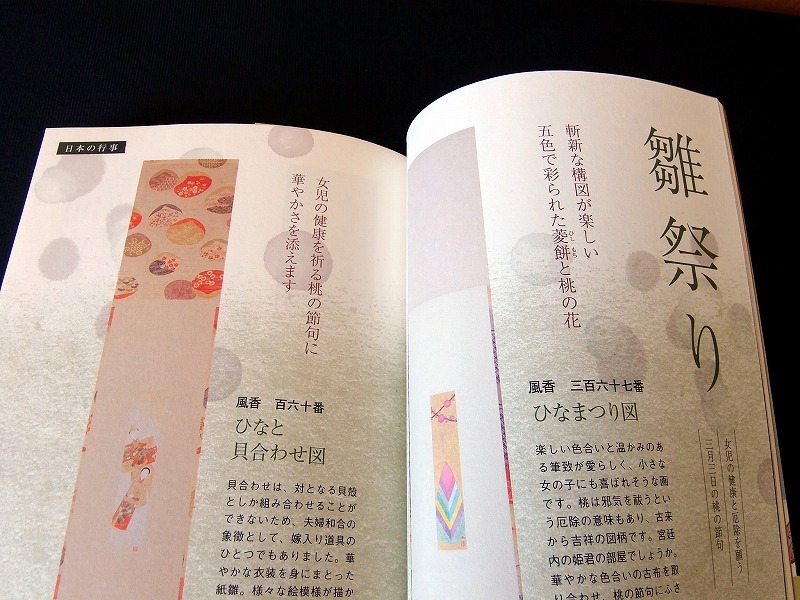 雛祭り
女児の健康と厄除を願う
三月三日の桃の節句
斬新な構図が楽しい
五色で彩られた菱餅と桃の花
ひし もち
風香 三百六十七番
ひなまつり図
楽しい色合いと温かみのあ
る筆致が愛らしく、小さな
女の子にも喜ばれそうな画
です。桃は邪気を祓うとい
う厄除の意味もあり、古来
から吉祥の図柄です。宮廷
内の姫君の部屋でしょうか。
華やかな色合いの古布を取
り合わせ、桃の節句にふさ
日本の行事
女児の健康を祈る桃の節句に
華やかさを添えます
風香 百六十番
ひなと
貝合わせ図
貝合わせは、対となる貝殻
としか組み合わせることが
できないため、夫婦和合の
象徴として、嫁入り道具の
ひとつでもありました。華
やかな衣装を身にまとった
紙雛。様々な絵模様が描か